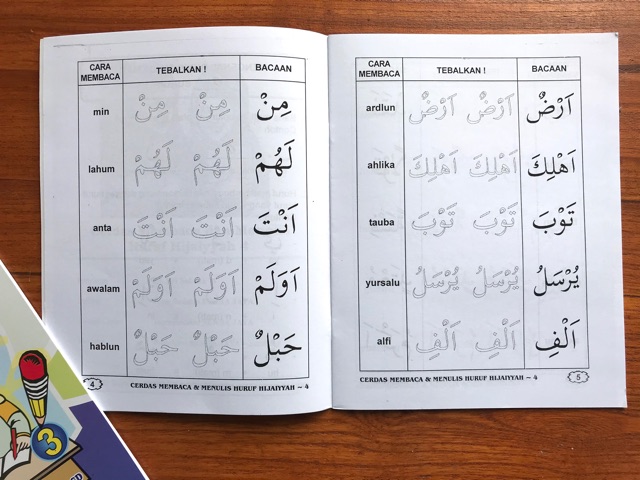 CARA MEMBACA TEBALKAN ! BACAAN
min مِنْ مِنْ مِنْ
lahum لَهُمْ لَهُمْ لَهُمْ
anta اَنْتَ اَنْتَ اَنْتَ
awalam اَوَلَمْ اَوَلَمْ اَوَلَمْ
hablun حَبْلٌ حَبْلٌ حَبْلٌ
4 CERDAS MEMBACA & MENULIS HURUF HIJAIYYAH – 4
CARA MEMBACA TEBALKAN ! BACAAN
ardlun اَرْضٌ اَرْضٌ اَرْضٌ
ahlika اَهْلِكَ اَهْلِكَ اَهْلِكَ
tauba تَوْبَ تَوْبَ تَوْبَ
yursalu يُرْسَلُ يُرْسَلُ يُرْسَلُ
alfi اَلْفِ اَلْفِ اَلْفِ
CERDAS MEMBACA & MENULIS HURUF HIJAIYYAH – 4 5
3